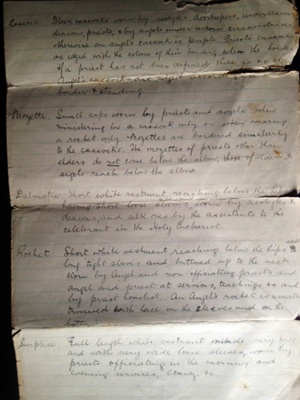 Cassock Black cassocks worn by acolytes, doorkeepers, underdeacons,
deacons, priests, & by angels under certain circumstances
otherwise an angels cassock is purple. Priests cassocks
are edged with the colour of their border, when the border
of a priest has not been defined there is no edge
Angels cassocks are
border & standing
Mozette Small cape worn by priests and angels when
ministering in a cassock only or when wearing
a rochet only. Mozettes are bordered similarly
to the cassocks. The mozettes of priests other than
elders do not come below the elbow, those of elders &
angels reach below the elbow.
Dalmatic Short white vestment reaching below the hips
having short loose sleeves worn by acolytes &
deacons, and silk ones by the assistants to the
celebrant in the Holy Eucharist.
Rochet Short white vestment reaching below the hips
long tight sleeves and buttoned up to the neck
worn by Angel and non officiating priests and
angel and priest at sermons, teachings &c and
by priest homilist. An Angel's rochet is
trimmed with lace on the sleeves and on the
bottom
Surplice Full length white vestment very full
and with very wide loose sleeves, worn by
priests officiating in the morning and
evening services, litany &c.